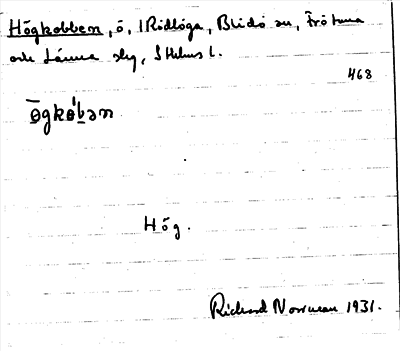 Högkobben, ö, i Ridlöga, Blidö sn, Frötuna
och Länna slg, Sthlms l.
468
ō̱gko̱'ḇən
Hög.
Richard Norrman 1931.